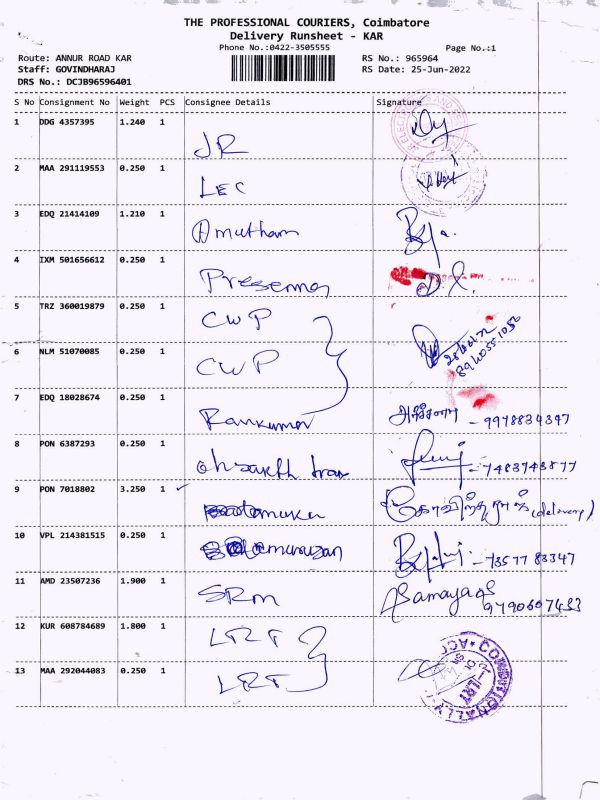 THE PROFESSIONAL COURIERS, Coimbatore
Delivery Runsheet - KAR
Phone No.:0422-3505555
Page No.:1
Route: ANNUR ROAD KAR
RS No.: 965964
Staff: GOVINDHARAJ
RS Date: 25-Jun-2022
DRS No.: DCJB96596401
S No Consignment No Weight PCS Consignee Details Signature
1 DDG 4357395 1.240 1
JR
2 MAA 291119553 0.250 1
LEC
3 EDQ 21414109 1.210 1
Amutham
4 IXM 501656612 0.250 1
5 TRZ 360019879 0.250 1
CWP
6 NLM 51070085 0.250 1
CWP
7 EDQ 18028674 0.250 1
Ramkumar - 9978834347
8 PON 6387293 0.250 1
- 7483743877
9 PON 7018802 3.250 1
கோவிந்தராஜ் (delivery)
10 VPL 214381515 0.250 1
- 73577 83347
11 AMD 23507236 1.900 1
SRM
9790607433
12 KUR 608784689 1.800 1
LRT
13 MAA 292044083 0.250 1
LRT